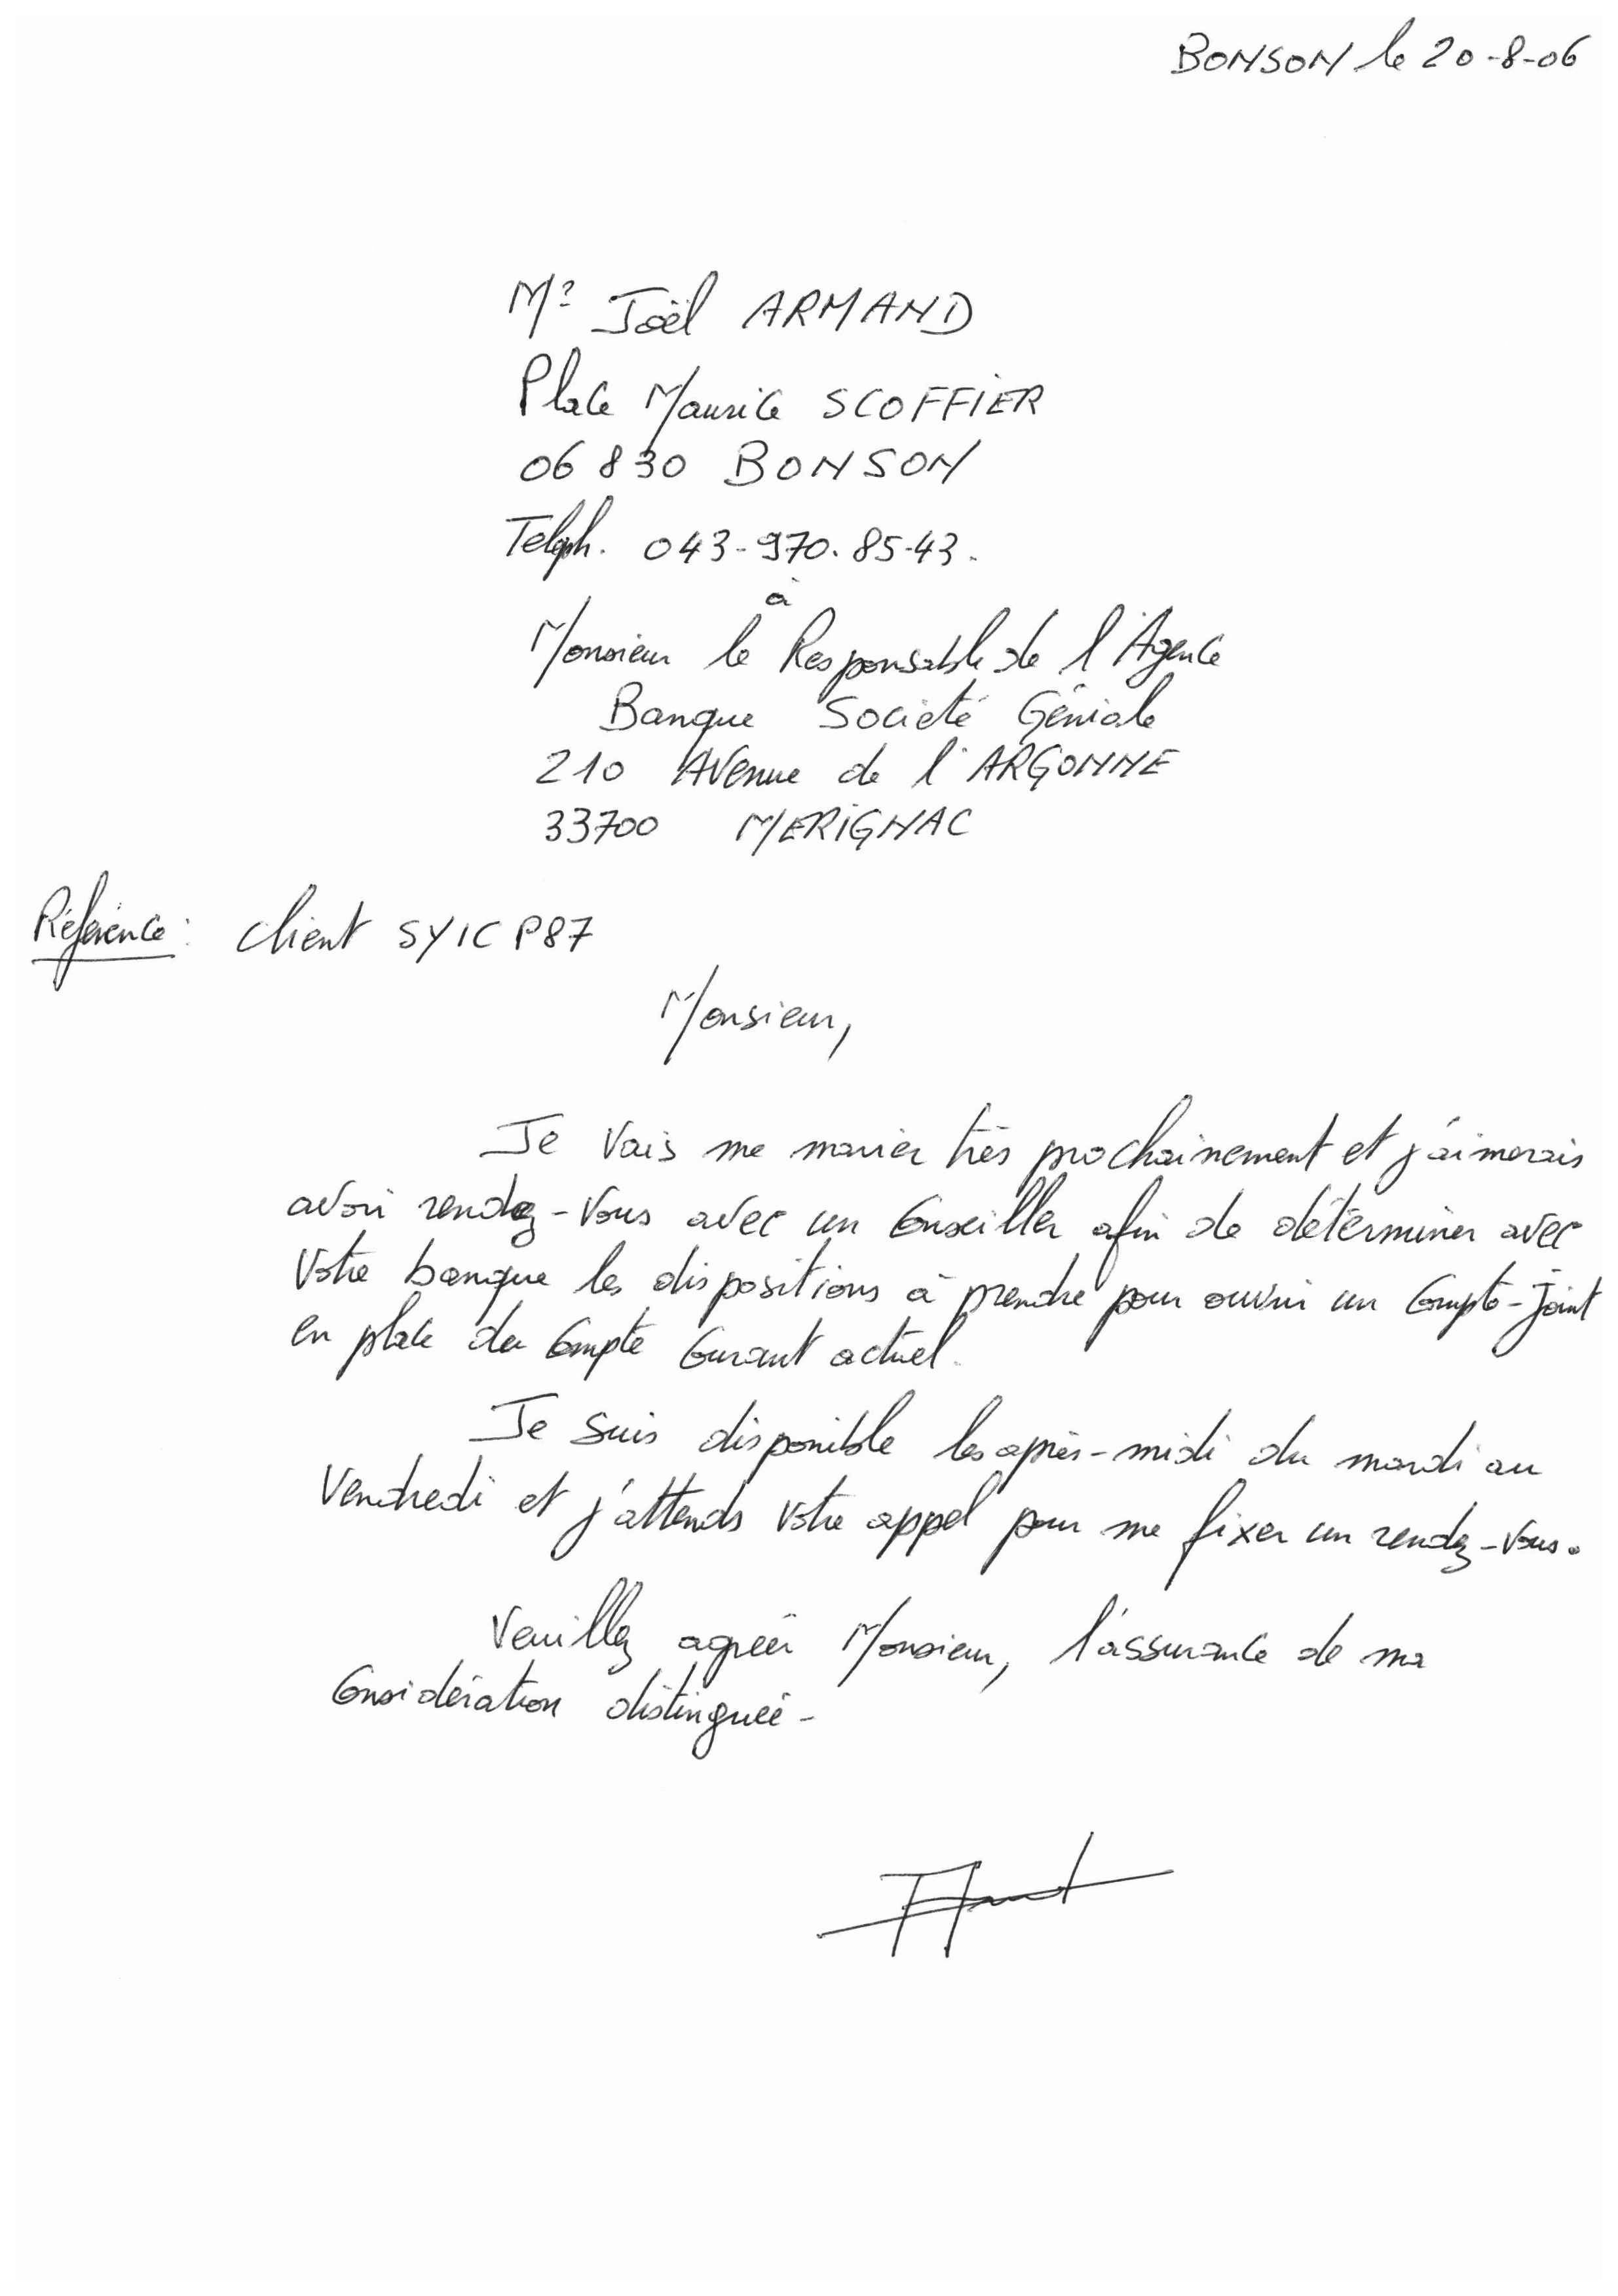 BONSON le 20-8-06
Mr Joël ARMAND
Place Maurice SCOFFIER
06 830 BONSON
Telph. 043-970.85-43.
à
Monsieur le Responsable de l'Agence
Banque Société Géniale
210 Avenue de l'ARGONNE
33700 MERIGNAC
Référence: client SYICP87
Monsieur,
Je vais me marier très prochainement et j'aimerais
avoir rendez-vous avec un conseiller afin de déterminer avec
votre banque les dispositions à prendre pour ouvrir un compte-joint
en place du compte courant actuel.
Je suis disponible les après-midi du mardi au
vendredi et j'attends votre appel pour me fixer un rendez-vous.
Veuillez agréer Monsieur, l'assurance de ma
considération distinguée-